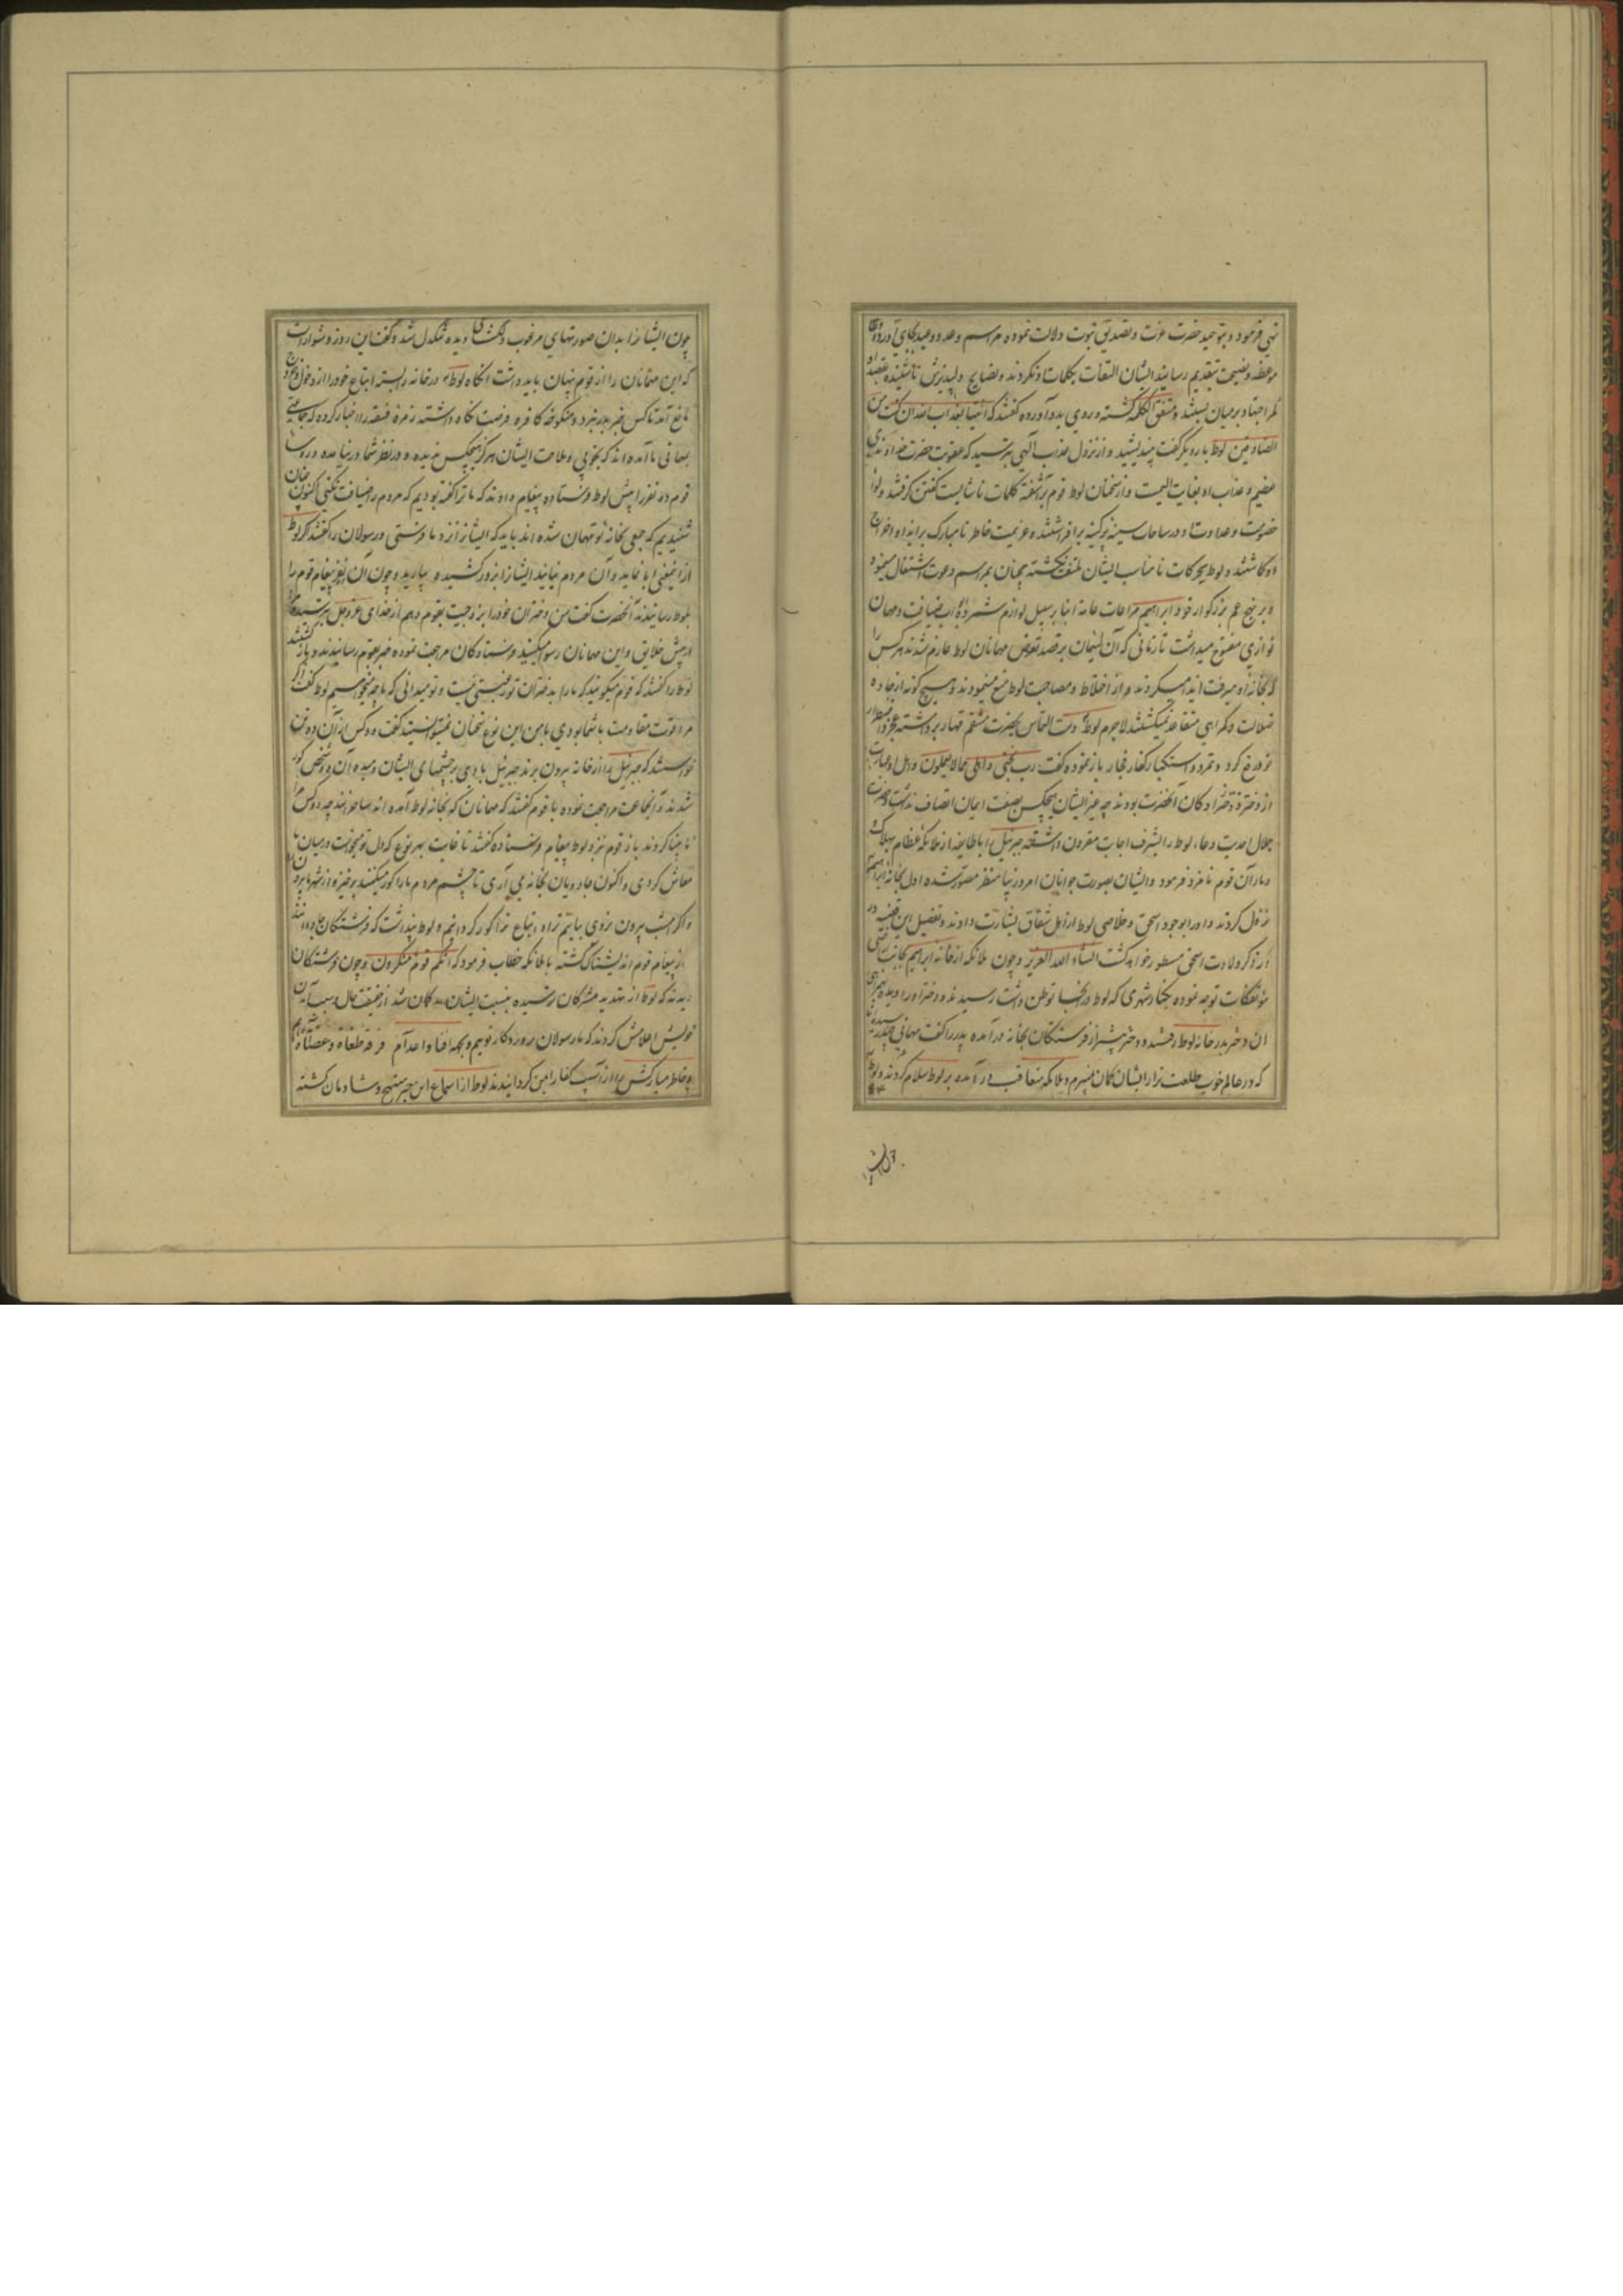 نهی فرمود و بتوحید حضرت عزت و تصدیق نبوت دلالت نموده مراسم وعد و وعید بجای آورد و
موعظه و نصیحت بتقدیم رسانید ایشان التفات بکلمات او نکردند و نصایح دلپذیرش ناشنیده بقصد او
کمر اجتهاد بر میان بستند و متفق الکلمه گشته و روی بدو آورده گفتند که ائتنا بعذاب الله ان کنت من
الصادقین لوط بار دیگر گفت بیندیشید و از نزول عذاب الهی بترسید که عقوبت حضرت خداوندی
عظیم و عذاب او بغایت الیمست و از سخنان لوط قوم برآشفته کلمات ناشایست گفتن گرفتند و لوای
خصومت و عداوت او در ساحات سینه پر کینه برافراشتند و عزیمت خاطر نامبارک بر ایذا و اخراج
او گماشتند و لوط بحرکات نامناسب ایشان ملتفت نگشته همچنان بمراسم دعوت اشتغال مینمود
و بر نهج عم بزرگوار خود ابراهیم مراعات عامه ابنا سبیل لوازم شمرده ابواب ضیافت و مهمان
نوازی مفتوح میداشت تا زمانی که آن لئیمان بر قصد تعرض مهمانان لوط عازم شدند هر کس را
که بخانه او میرفت ایذا میکردند و از اختلاط و مصاحبت لوط منع مینمودند و بهیچ گونه از جاده
ضلالت و گمراهی متقاعد نمیگشتند لاجرم لوط دست التماس بحضرت منتقم قهار برداشته عجز و اضطرار
خود عرض کرد و تمرد و استکبار کفار فجار باز نموده گفت رب نجنی و اهلی مما یعملون و اهل او عبارت
از دختر و دخترزادگان آنحضرت بودند چه غیر ایشان هیچکس بصفت ایمان اتصاف نداشت و حضرت
جلال احدیت دعاء لوط را بشرف اجابت مقرون داشته جبرئیل را با طایفه از ملائکه عظام بهلاک
و دمار آن قوم نامزد فرمود و ایشان بصورت جوانان امرد زیبا منظر مصور شده اول بخانه ابراهیم
نزول کردند و او را بوجود اسحق و خلاصی لوط از اهل شقاق بشارت دادند و تفصیل این قضیه در
ذکر ولادت اسحق مسطور خواهد گشت انشاء الله العزیز و چون ملائکه از خانه ابراهیم بجانب
مؤتفکات توجه نموده بکنار شهری که لوط در آنجا توطن داشت رسیدند و دختر او را دیده
آن دختر بدر خانه لوط رفتند و دختر پیشتر از فرستگان بخانه درآمده پدر را گفت مهمانی چند رسیده
که در عالم خوب طلعت تر از ایشان گمان نمیبرم و ملائکه متعاقب درآمده بر لوط سلام کردند و لوط
چون ایشان
چون ایشانرا بدان صورتهای مرغوب و دلکش دید تنگدل شد و گفت این روز دشوار است
که این مهمانان را از قوم پنهان باید داشت آنگاه لوط در خانه در بسته اتباع خود را از دخول و خروج
مانع آمد تا کس خبر بدر نبرد و منکوحه کافره فرصت نگاه داشته زمره فسقه را اخبار کرد که جماعتی
بمهمانی ما آمده اند که بخوبی و ملاحت ایشان هرگز هیچکس ندیده و در نظر شما درنیامده و رؤسا
قوم ده نفر را پیش لوط فرستاده پیغام دادند که ما ترا گفته بودیم که مردم را ضیافت نکنی اکنون چنان
شنیدیم که جمعی بخانه تو مهمان شده اند باید که ایشانرا نزد ما فرستی و رسولان را گفتند که اگر لوط
ازین معنی ابا نماید و آن مردم نیایند ایشانرا بزور کشیده بیارید و چون آن نفر پیغام قوم را
بلوط رسانیدند آنحضرت گفت من دختران خود را بزوجیت بقوم دهم از خدای عز و جل بترسید و مرا
در پیش خلایق و این مهمانان رسوا مکنید فرستادگان مراجعت نموده خبر بقوم رسانیدند و باز گشتند
لوط را گفتند که قوم میگویند که ما را بدختران تو رغبتی نیست و تو میدانی که ما چه میخواهیم لوط گفت اگر
مرا قوت مقاومت با شما بودی با من این نوع سخنان نمیتوانستید گفت دو کس از آن ده تن
خواستند که جبرئیل را از خانه بیرون برند جبرئیل بادی بر چشمهای ایشان دمیده آن دو شخص کور
شدند و آنجماعت مراجعت نموده با قوم گفتند که مهمانان که بخانه لوط آمده اند ساحرانند چه دو کس را
نابینا کردند باز قوم نزد لوط پیغام فرستاده گفتند تا غایت بهر نوع که دل تو میخواست در میان ما
معاش کردی و اکنون جادویان بخانه می آری تا چشم مردم ما را کور میکنند برخیز و از شهر ما بیرون
و اگر امشب بیرون نروی بیائیم ترا و اتباع ترا کور گردانیم و لوط پنداشت که فرشتگان جادوانند
از پیغام قوم اندیشناک گشته با ملائکه خطاب فرمود که انکم قوم منکرون و چون فرشتگان
دیدند که لوط از تهدید مشرکان ترسیده بنسبت ایشان بدگمان شد از حقیقت حال و سبب آمدن
خویش اعلامش کردند که ما رسولان پروردگار توییم و بجهه افنا و اعدام فرقه طغاة و عصاة آمده ایم
و خاطر مبارکش را از آسیب کفار ایمن گردانیدند لوط از استماع این خبر مبتهج و شادمان گشته